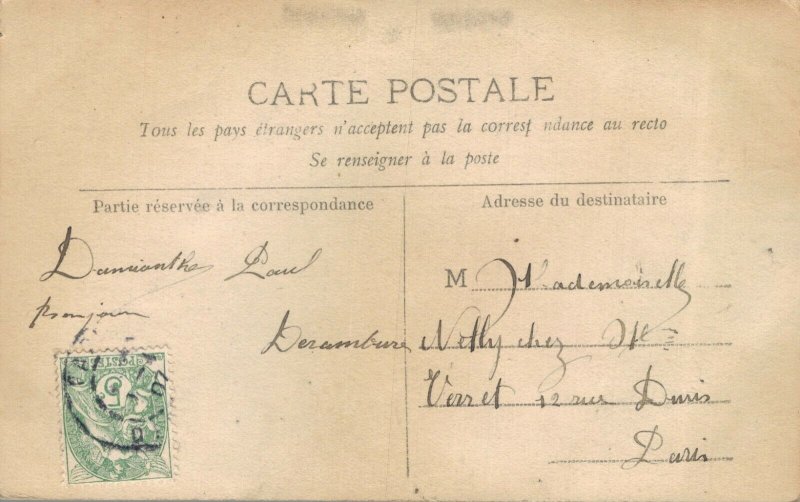 CARTE POSTALE
Tous les pays étrangers n'acceptent pas la corresp ndance au recto
Se renseigner à la poste
Partie réservée à la correspondance
Adresse du destinataire
Paul
M Mademoiselle
Derambure
Nelly chez M
Verret 12 rue Duris
Paris
5
POSTES